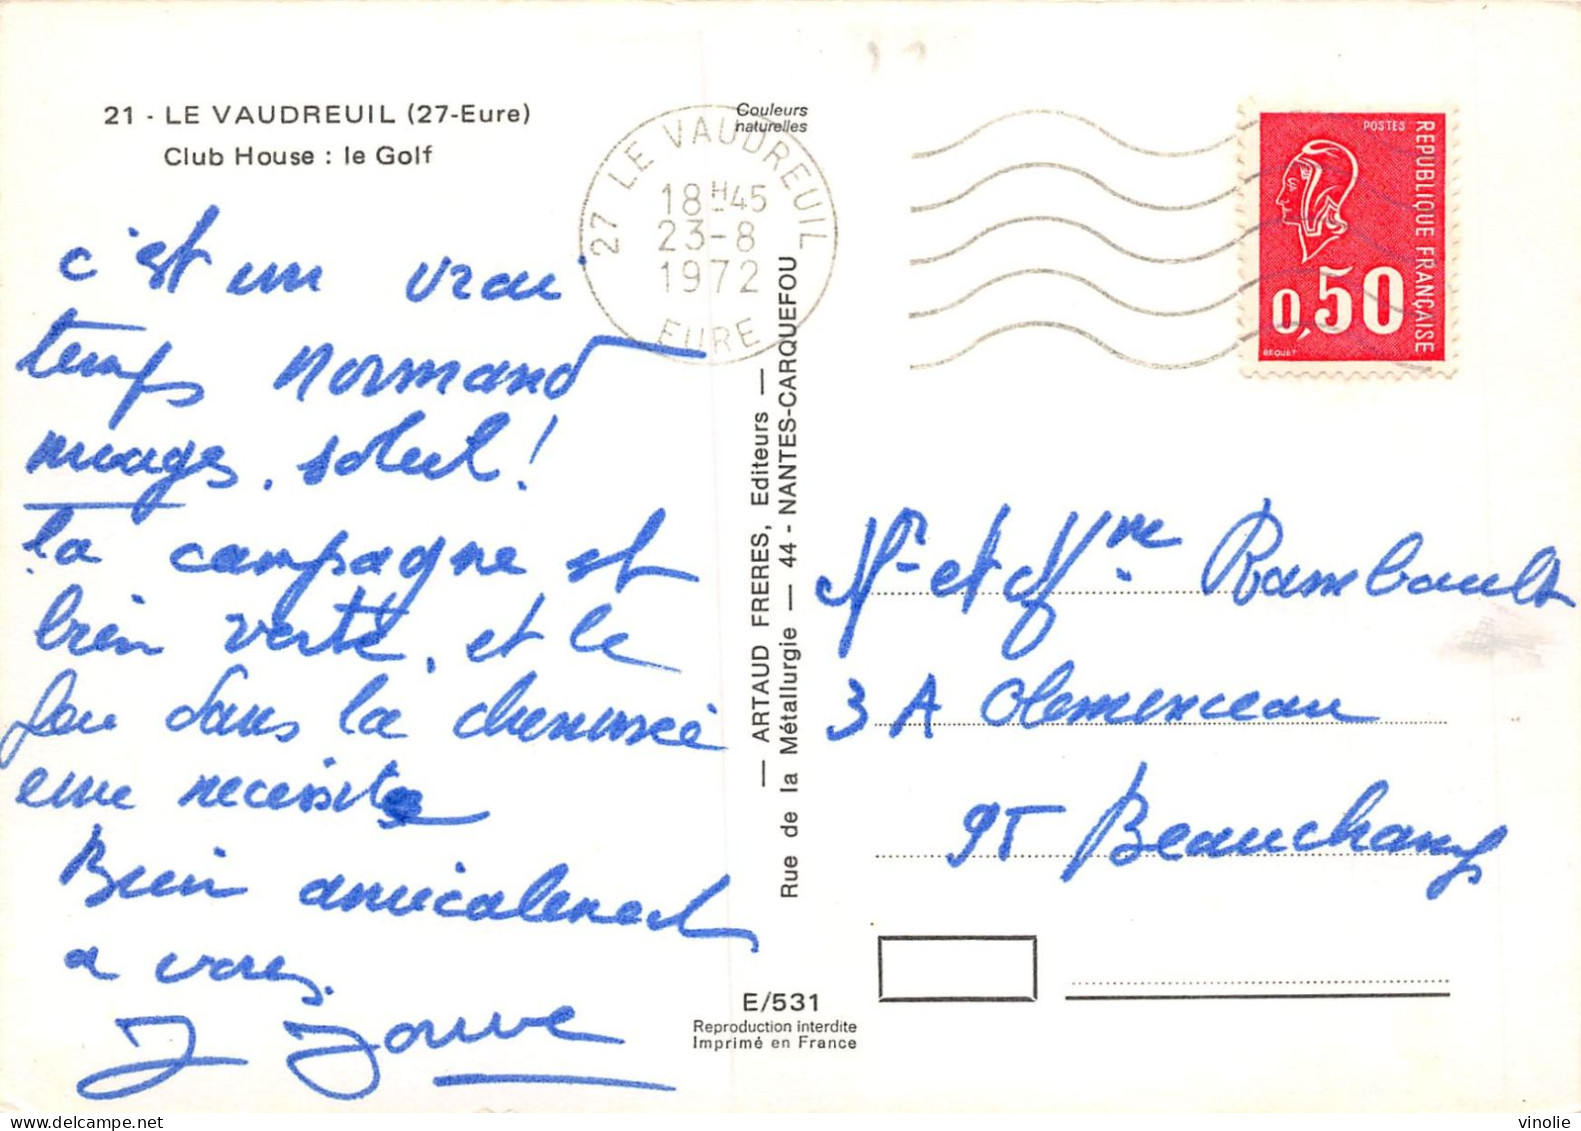 21 - LE VAUDREUIL (27-Eure)
Club House : le Golf
c'est un vrai
temps normand
nuages, soleil!
la campagne est
bien verte, et le
feu dans la cheminée
une necessité
Bien amicalement
a vous.
J Jouve
Couleurs
naturelles
27 LE VAUDREUIL
18H45
23-8
1972
EURE
— ARTAUD FRERES, Editeurs —
Rue de la Métallurgie — 44 - NANTES-CARQUEFOU
E/531
Reproduction interdite
Imprimé en France
POSTES
REPUBLIQUE FRANÇAISE
0,50
BEQUET
Mr et Mme Rambault
3 A Clemenceau
95 Beauchamp
vinolie